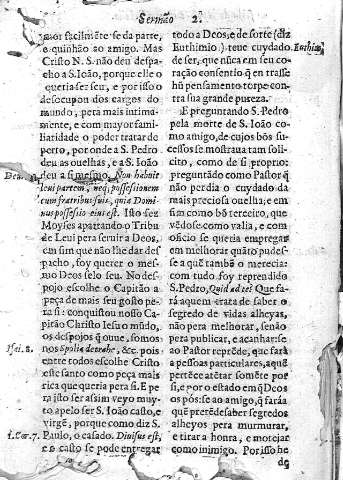 Sermão 2.
mor facilmẽte se da parte,
e quinhão ao amigo. Mas
Cristo N. S. não deu despa-
cho a S. Ioão, porque elle o
queria ser seu, e por isso o
desocupou dos cargos do
mundo, pera mais intima-
mente, e com mayor fami-
liaridade o poder tratar de
perto, por onde a S. Pedro
deu as ouelhas, e a S. Ioão
deu a si mesmo. Non habebit
leui partem, neq; possessionem
cum fratribus suis, quia Domi-
nus possessio eius est. Isto fez
Moyses apartando o Tribu
de Leui pera seruir a Deos,
em sim que não lhe dar des-
pacho, foy querer o mes-
mo Deos selo seu. No des-
pojo escolhe o Capitão a
peça de mais seu gosto pe-
ra si: conquistou nosso Ca-
pitão Christo Iesu o mũdo,
os despojos q̃ ouue, somos
nos Spolia detrahe, &c. pois
entre todos escolhe Christo
este santo como peça mais
rica que queria pera si. E pe-
ra isto ser assim veyo muy-
to apelo ser S. Ioão casto, e
virgẽ, porque como diz S.
Paulo, o casado. Diuisus est,
e o casto se pode entregar
Deu.
Isai. 8.
1. Cor. 7.
todo a Deos, e de sorte (diz
Euthimio) teue cuydado
de ser, que nũca em seu co-
ração consentio q̃ entrasse
hũ pensamento torpe con-
tra sua grande pureza.
E preguntando S. Pedro
pela morte de S. Ioão co-
mo amigo, de cujos bõs su-
cessos se mostraua tam soli-
cito, como de si proprio:
preguntãdo como Pastor q̃
não perdia o cuydado da
mais preciosa ouelha; e em
sim como bõ terceiro, que
vẽdo se como valia, e com
officio se queria empregar
em melhorar quãto pudes-
se a quẽ tambẽ o merecia:
com tudo foy reprendido
S. Pedro, Quid ad te? Que fa-
rá aquem trata de saber o
segredo de vidas alheyas,
não pera melhorar, senão
pera publicar, e acanhar: se
ao Pastor reprẽde, que fará
a pessoas particulares, aquẽ
pertẽce atẽtar somẽte por
si, e por o estado em q̃ Deos
os pôs: se ao amigo, q̃ farà a
quẽ pretẽde saber segredos
alheyos pera murmurar,
e tirar a honra, e motejar
como inimigo. Por isso he
Euthimi.
de